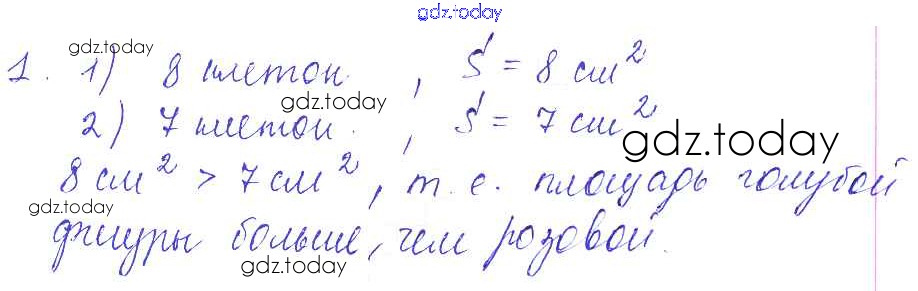 gdz.today
gdz.today
1. 1) 8 клеток. , S = 8 см²
gdz.today
2) 7 клеток. , S = 7 см²
gdz.today
8 см² > 7 см², т.е. площадь голубой
gdz.today
фигуры больше, чем розовой.
gdz.today